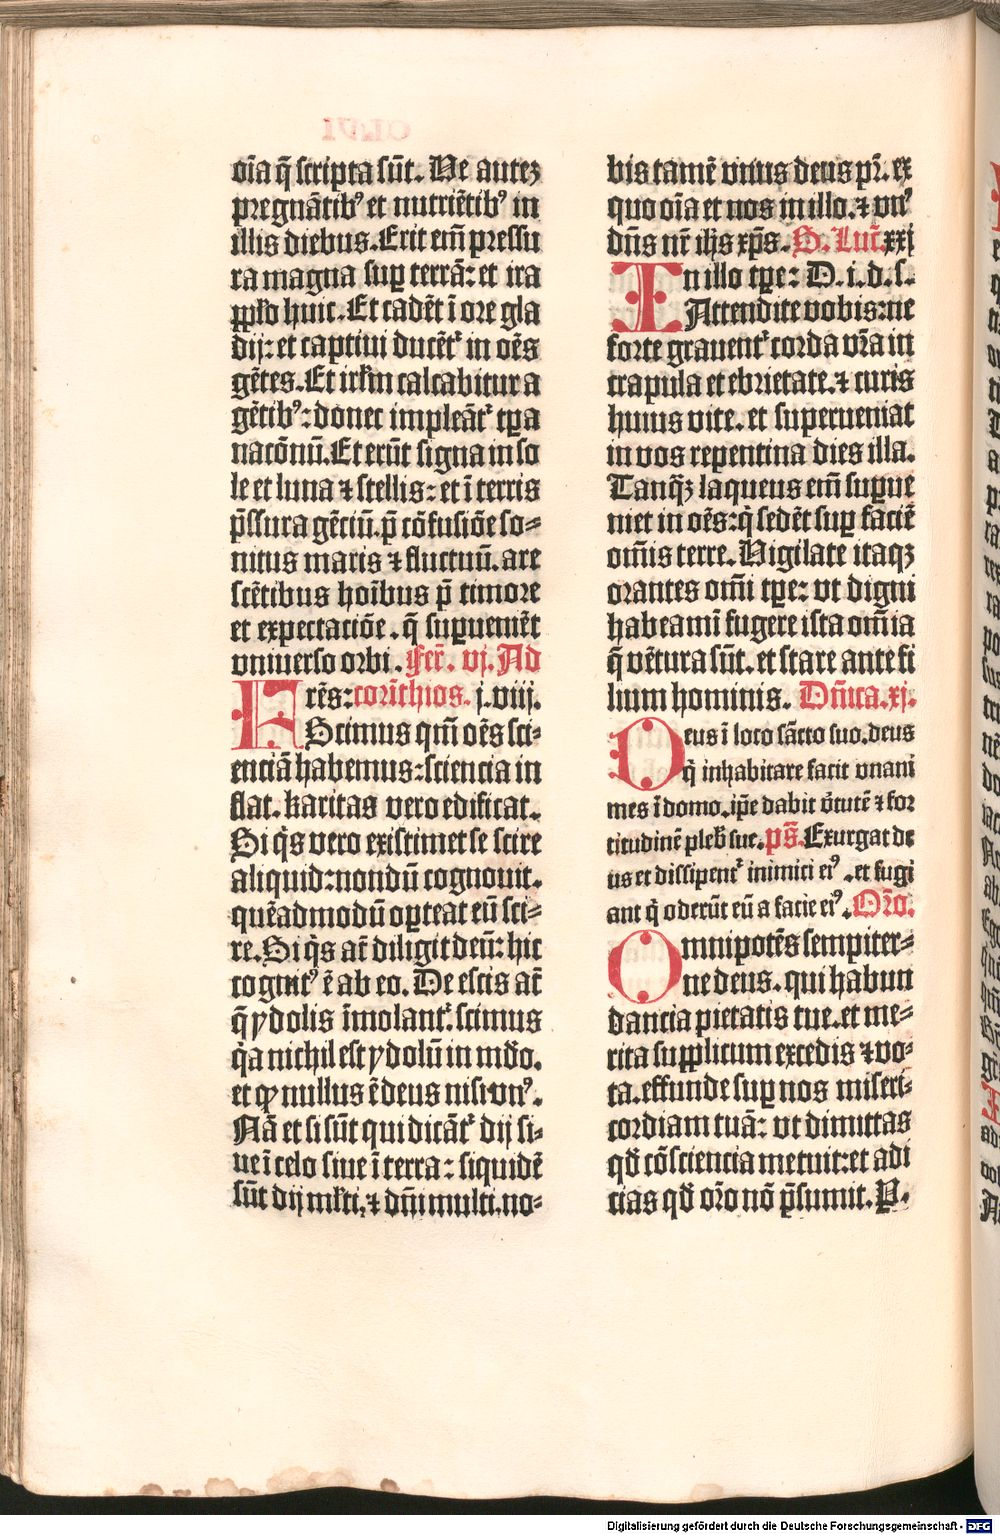 oīa q̄ scripta sūt. Ve autez
pregnātib⁹ et nutriētib⁹ in
illis diebus. Erit em̄ pressu
ra magna suꝑ terrā: et ira
ꝑplo huic. Et cadēt ī ore gla
dij: et captiui ducēt᷑ in oēs
gētes. Et irlm̄ calcabitur a
gētib⁹: donec impleāt᷑ tꝑa
nacōnū. Et erūt signa in so
le et luna ⁊ stellis: et ī terris
p̄ssura gēciū. p̄ cōfusiōe so⸗
nitus maris ⁊ fluctuū. are
scētibus hoībus p̄ timore
et expectaciōe. q̄ suꝑueniēt
vniuerso orbi. Fer̄. vj. Ad
Frēs: corīthios. j. viij.
Scimus qm̄ oēs sci⸗
enciā habemus: sciencia in
flat. karitas vero edificat.
Si q̇s vero existimet se scire
aliquid: nondū cognouit.
quēadmodū oꝑteat eū sci⸗
re. Si q̇s at̄ diligit deū: hic
cognit⁹ ē ab eo. De escis at̄
q̄ ydolis īmolant᷑. scimus
q̇a nichil est ydolū in mūdo.
et ꝙ nullus ē deus nisi vn⁹.
Nā et si sūt qui dicāt᷑ dij si⸗
ue ī celo siue ī terra: siquidē
sūt dij mlti. ⁊ dn̄i multi. no⸗
bis tamē vnus deus pr̄. ex
quo oīa et nos in illo. ⁊ vn⁹
dn̄s nr̄ ih̄s xp̄s. S. Luc̄. xxj
In illo tꝑe: D. i. d. s.
Attendite vobis: ne
forte grauent᷑ corda vr̄a in
crapula et ebrietate. ⁊ curis
huius vite. et superueniat
in vos repentina dies illa.
Tanqꝫ laqueus em̄ suꝑue
niet in oēs: q̇ sedēt suꝑ faciē
om̄is terre. Vigilate itaqꝫ
orantes om̄i tꝑe: vt digni
habeamī fugere ista om̄ia
q̄ vētura sūt. et stare ante fi
lium hominis. Dn̄ica. xj.
Deus ī loco sācto suo. deus
q̇ inhabitare facit vnanī
mes ī domo. ip̄e dabit v̄tutē ⁊ for
titudinē pleb̄ sue. ps̄. Exurgat de
us et dissipent᷑ inimici ei⁹. et fugi
ant q̇ oderūt eū a facie ei⁹. Or̄o.
Omnipotēs sempiter⸗
ne deus. qui habun
dancia pietatis tue. et me⸗
rita supplicum excedis ⁊ vo⸗
ta. effunde suꝑ nos miseri⸗
cordiam tuā: vt dimittas
qd̄ cōsciencia metuit: et adi
cias qd̄ or̄o nō p̄sumit. P.
Digitalisierung gefördert durch die Deutsche Forschungsgemeinschaft - DFG